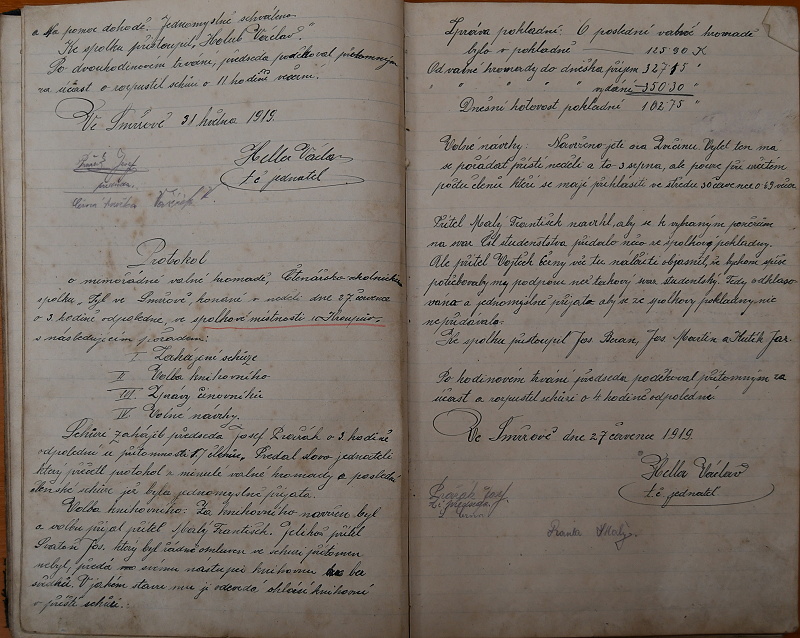 a na pomoc dohodě. Jednomyslně schváleno.
Ke spolku přistoupil „Holub Václav“.
Po dvouhodinovém trvání, předseda poděkoval přítomným
za účast a rozpustil schůzi o 11 hodině večerní.
Ve Smířově 31 května 1919.
Hella Václav
t. č. jednatel
předseda.
Protokol
o mimořádné valné hromadě, Čtenářsko-ochotnického
spolku „Tyl ve Smírově, konané v neděli dne 27 července
o 3. hodině odpoledne, ve spolkové místnosti u Kroupů
s následujícím pořadem:
I Zahájení schůze
II Volba knihovního
III Zprávy činovníků
IV Volné návrhy.
Schůzi zahájil předseda Josef Dvořák o 3 hodině
odpolední u přítomnosti 17 členů. Předal slovo jednateli
který přečetl protokol z minulé valné hromady a poslední
členské schůze jež byla jednomyslně přijata.
Volba knihovního: Za knihovního navržen byl
a volbu přijal přítel Malý František. Jelikož přítel
Jos. který byl řádně omluven ve schůzi přítomen
nebyl, předá svému nástupci knihovnu bez
svědků. V jakém stavu mu ji odevzdá ohlásí knihovní
v příští schůzi.
Zpráva pokladní: O poslední valné hromadě
bylo v pokladně 125.90 K
Od valné hromady do dneška příjem 327.15 „
„ „ „ „ „ vydání 350.30 „
Dnešní hotovost pokladní 102.75 „
Volné návrhy: Navrženo jíti na Zvičinu. Výlet ten má
se pořádat příští neděli a to 3 srpna, ale pouze při určitém
počtu členů kteří se mají přihlásiti ve středu 30 července o 9 večer
Přítel Malý František navrhl, aby se k vybraným penězům
na svaz čsl studentstva přidalo něco ze spolkové pokladny.
Ale přítel Vojtěch Černý věc tu náležitě objasnil, že bychom spíše
potřebovali my podpore než takový svaz studentský. Tedy odhlaso-
váno a jednomyslně přijato aby se ze spolkovy pokladny nic
nepřidávalo.
Ke spolku přistoupil Jos. Beran, Jos. Martin a Kutík Jar.
Po hodinovém trvání předseda poděkoval přítomným za
účast a rozpustil schůzi o 4 hodině odpoledne.
Ve Smírově dne 27 července 1919.
Hella Václav
t. č. jednatel
Dvořák Josef.
t. č. předseda
Franta Malý.